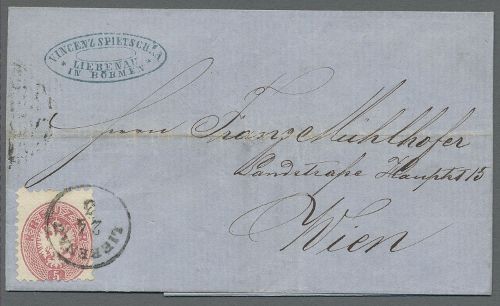 VINCENZ SPIETSCHKA
LIEBENAU
IN BÖHMEN
Herrn Franz Mühlhofer
Landstraße Hauptst 15
Wien
LIEBENAU
5